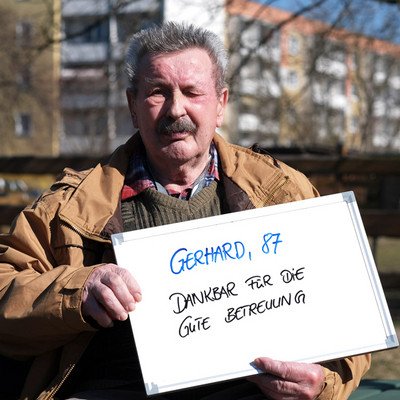 GERHARD, 87
DANKBAR FÜR DIE
GUTE BETREUUNG